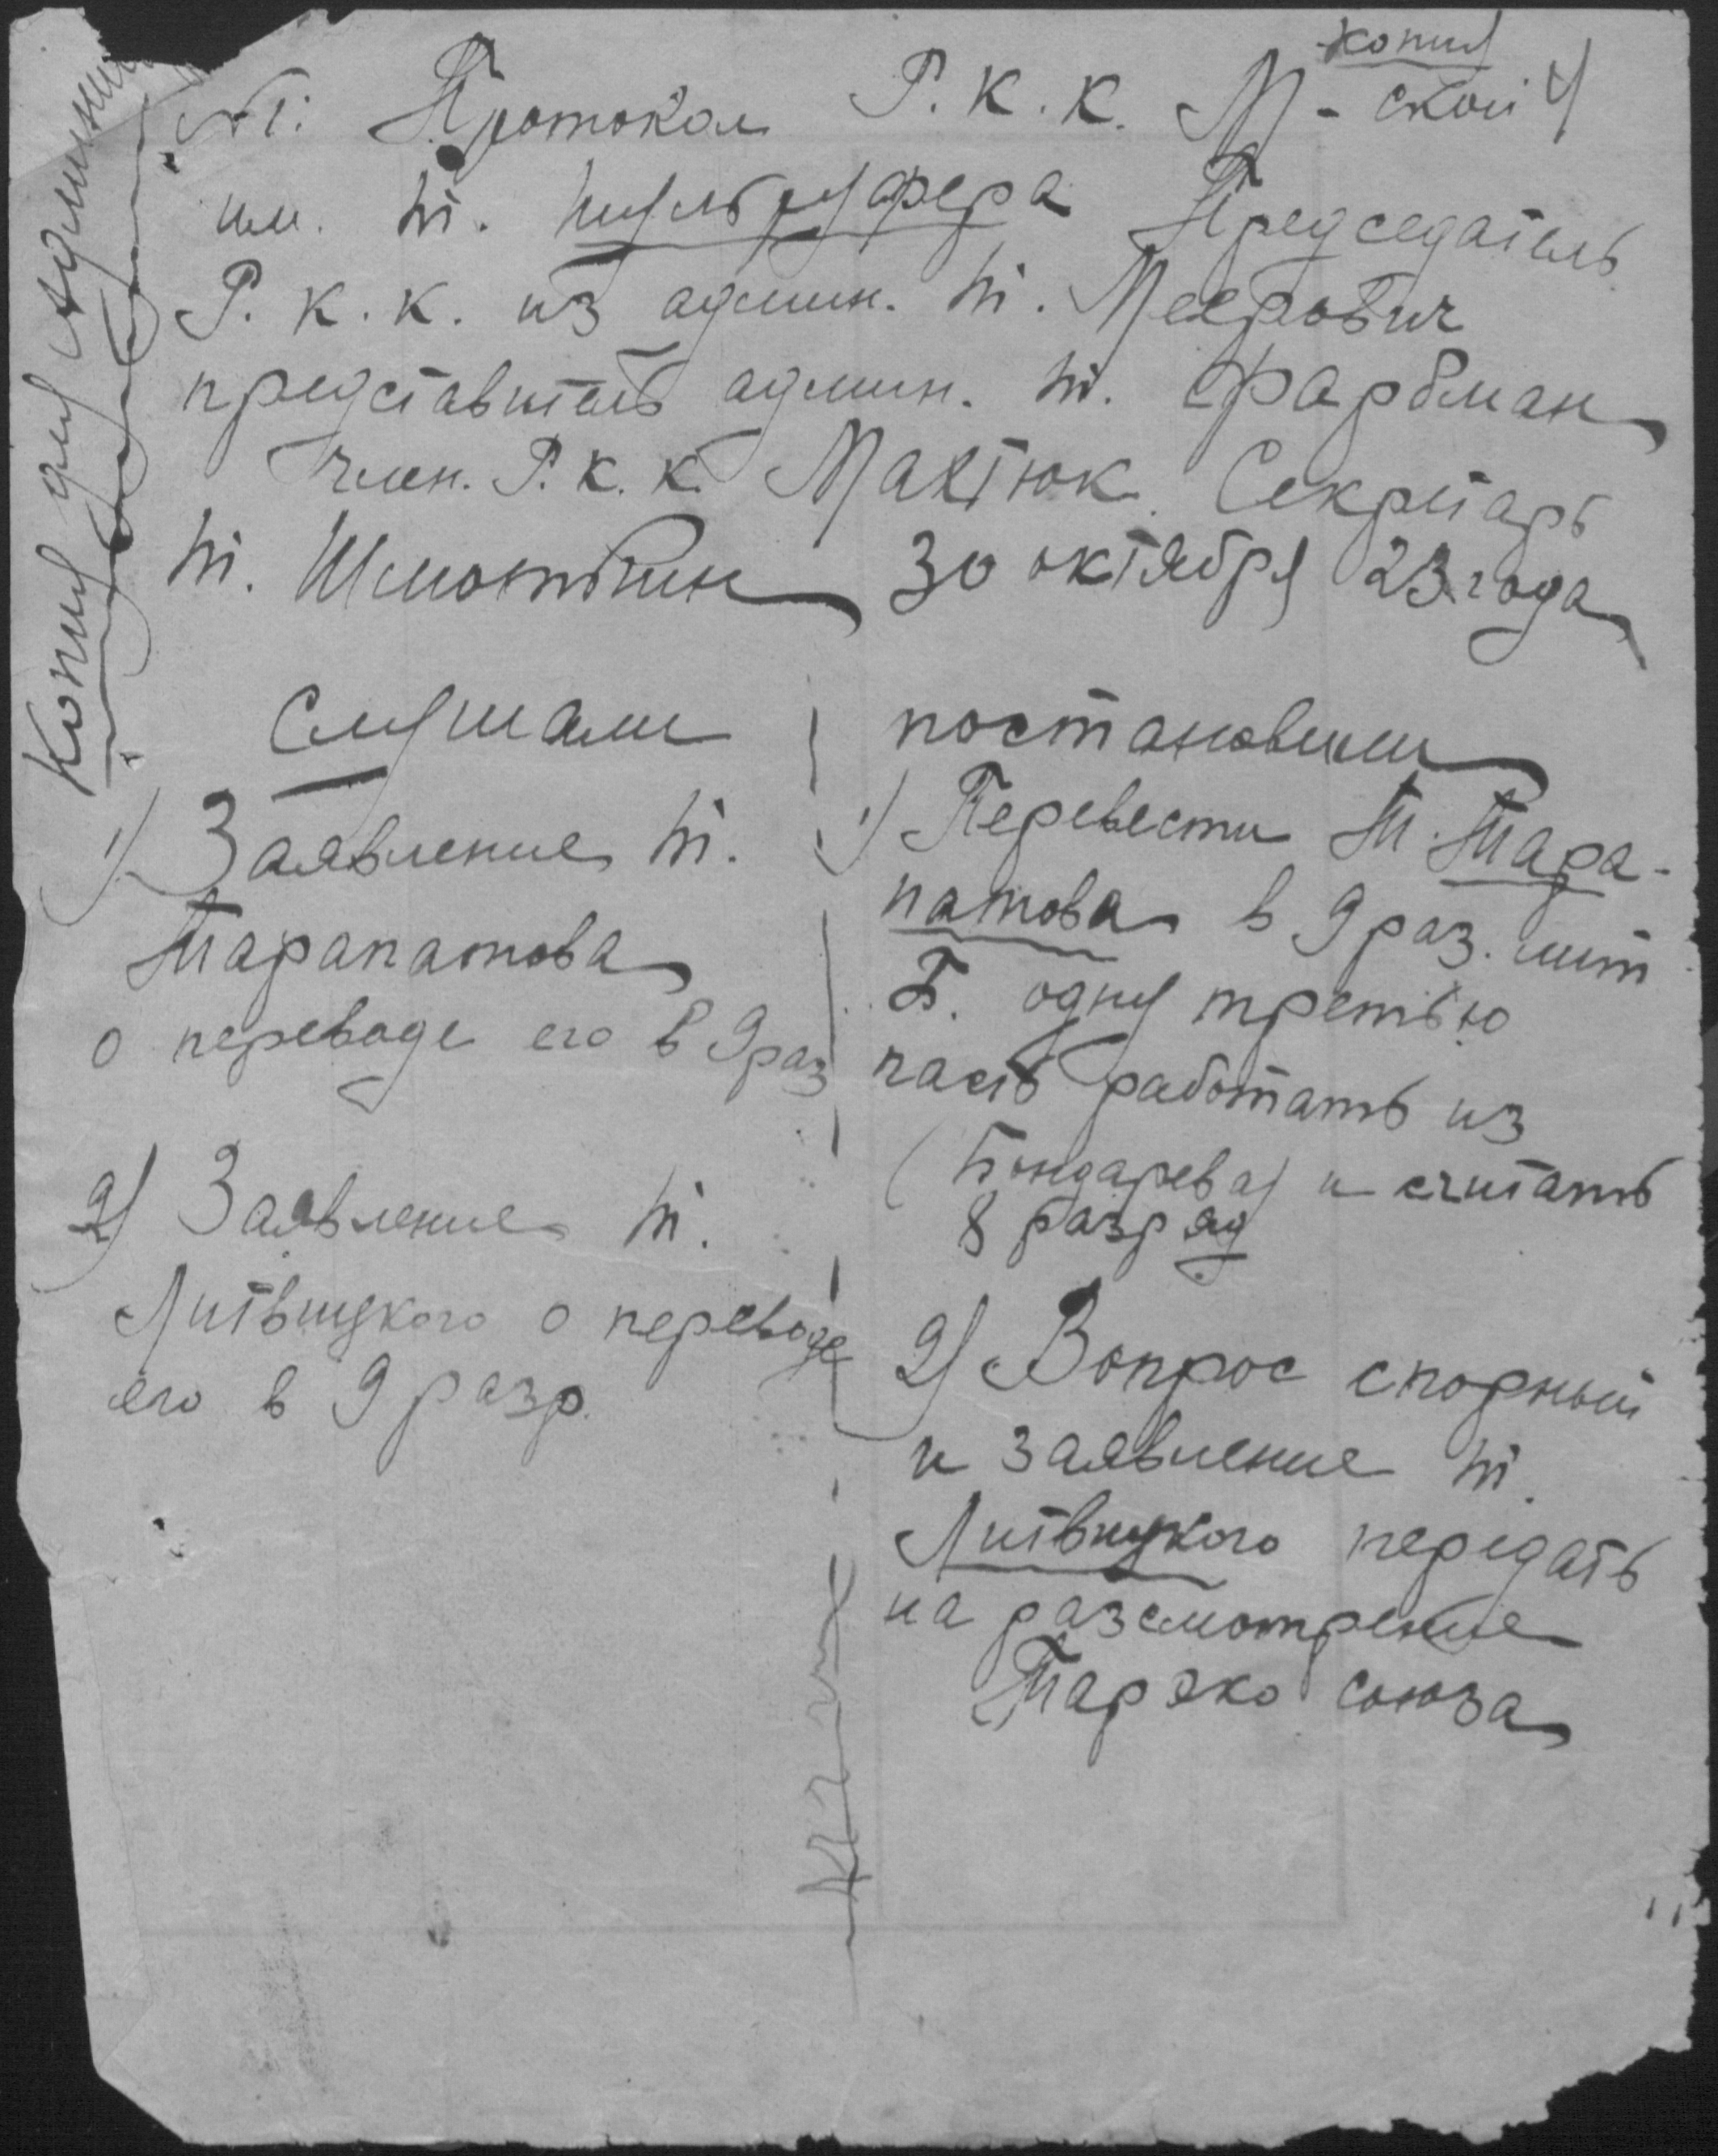 Копия
№1. Протокол Р.К.К. М-ской
им. т. Председатель
Р.К.К. из админ. т. Меерович
представитель админ. т. Фарбман
член. Р.К.К. Мастюк. Секретарь
т. Шмоткин 30 октября 23 года
Копия для
Слушали
1) Заявление т.
Тарапатова
о переводе его в 9 раз
2) Заявление т.
Литвицкого о переводе
его в 9 разр.
постановили
1) Перевести т. Тара-
патова в 9 раз. лит
Б. одну третью
часть работать из
(Бондарева) и считать
8 разряд
2) Вопрос спорный
и заявление т.
Литвицкого передать
на разсмотрение
Тарэко союза